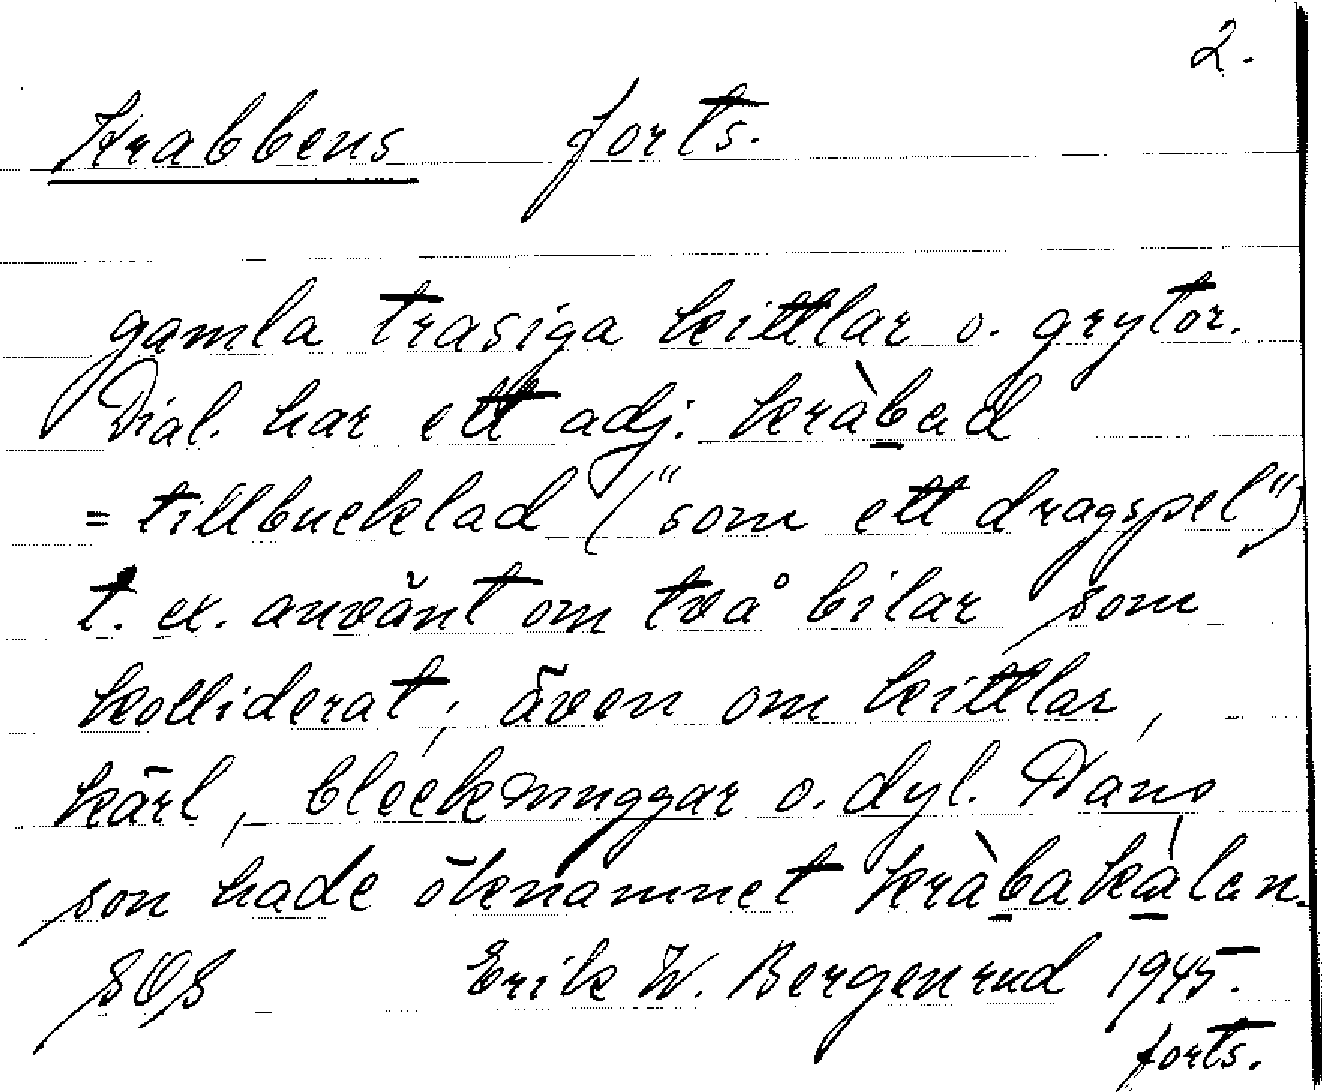 2.
Krabbens forts.
gamla trasiga kittlar o. grytor.
Dial. har ett adj. kràbad
= tillbucklad ("som ett dragspel")
t. ex. använt om två bilar som
kolliderat; även om kittlar,
kärl, bleckmuggar o. dyl. Dans
son hade öknamnet kràbakálen.
SOS Erik W. Bergenrud 1945.
forts.